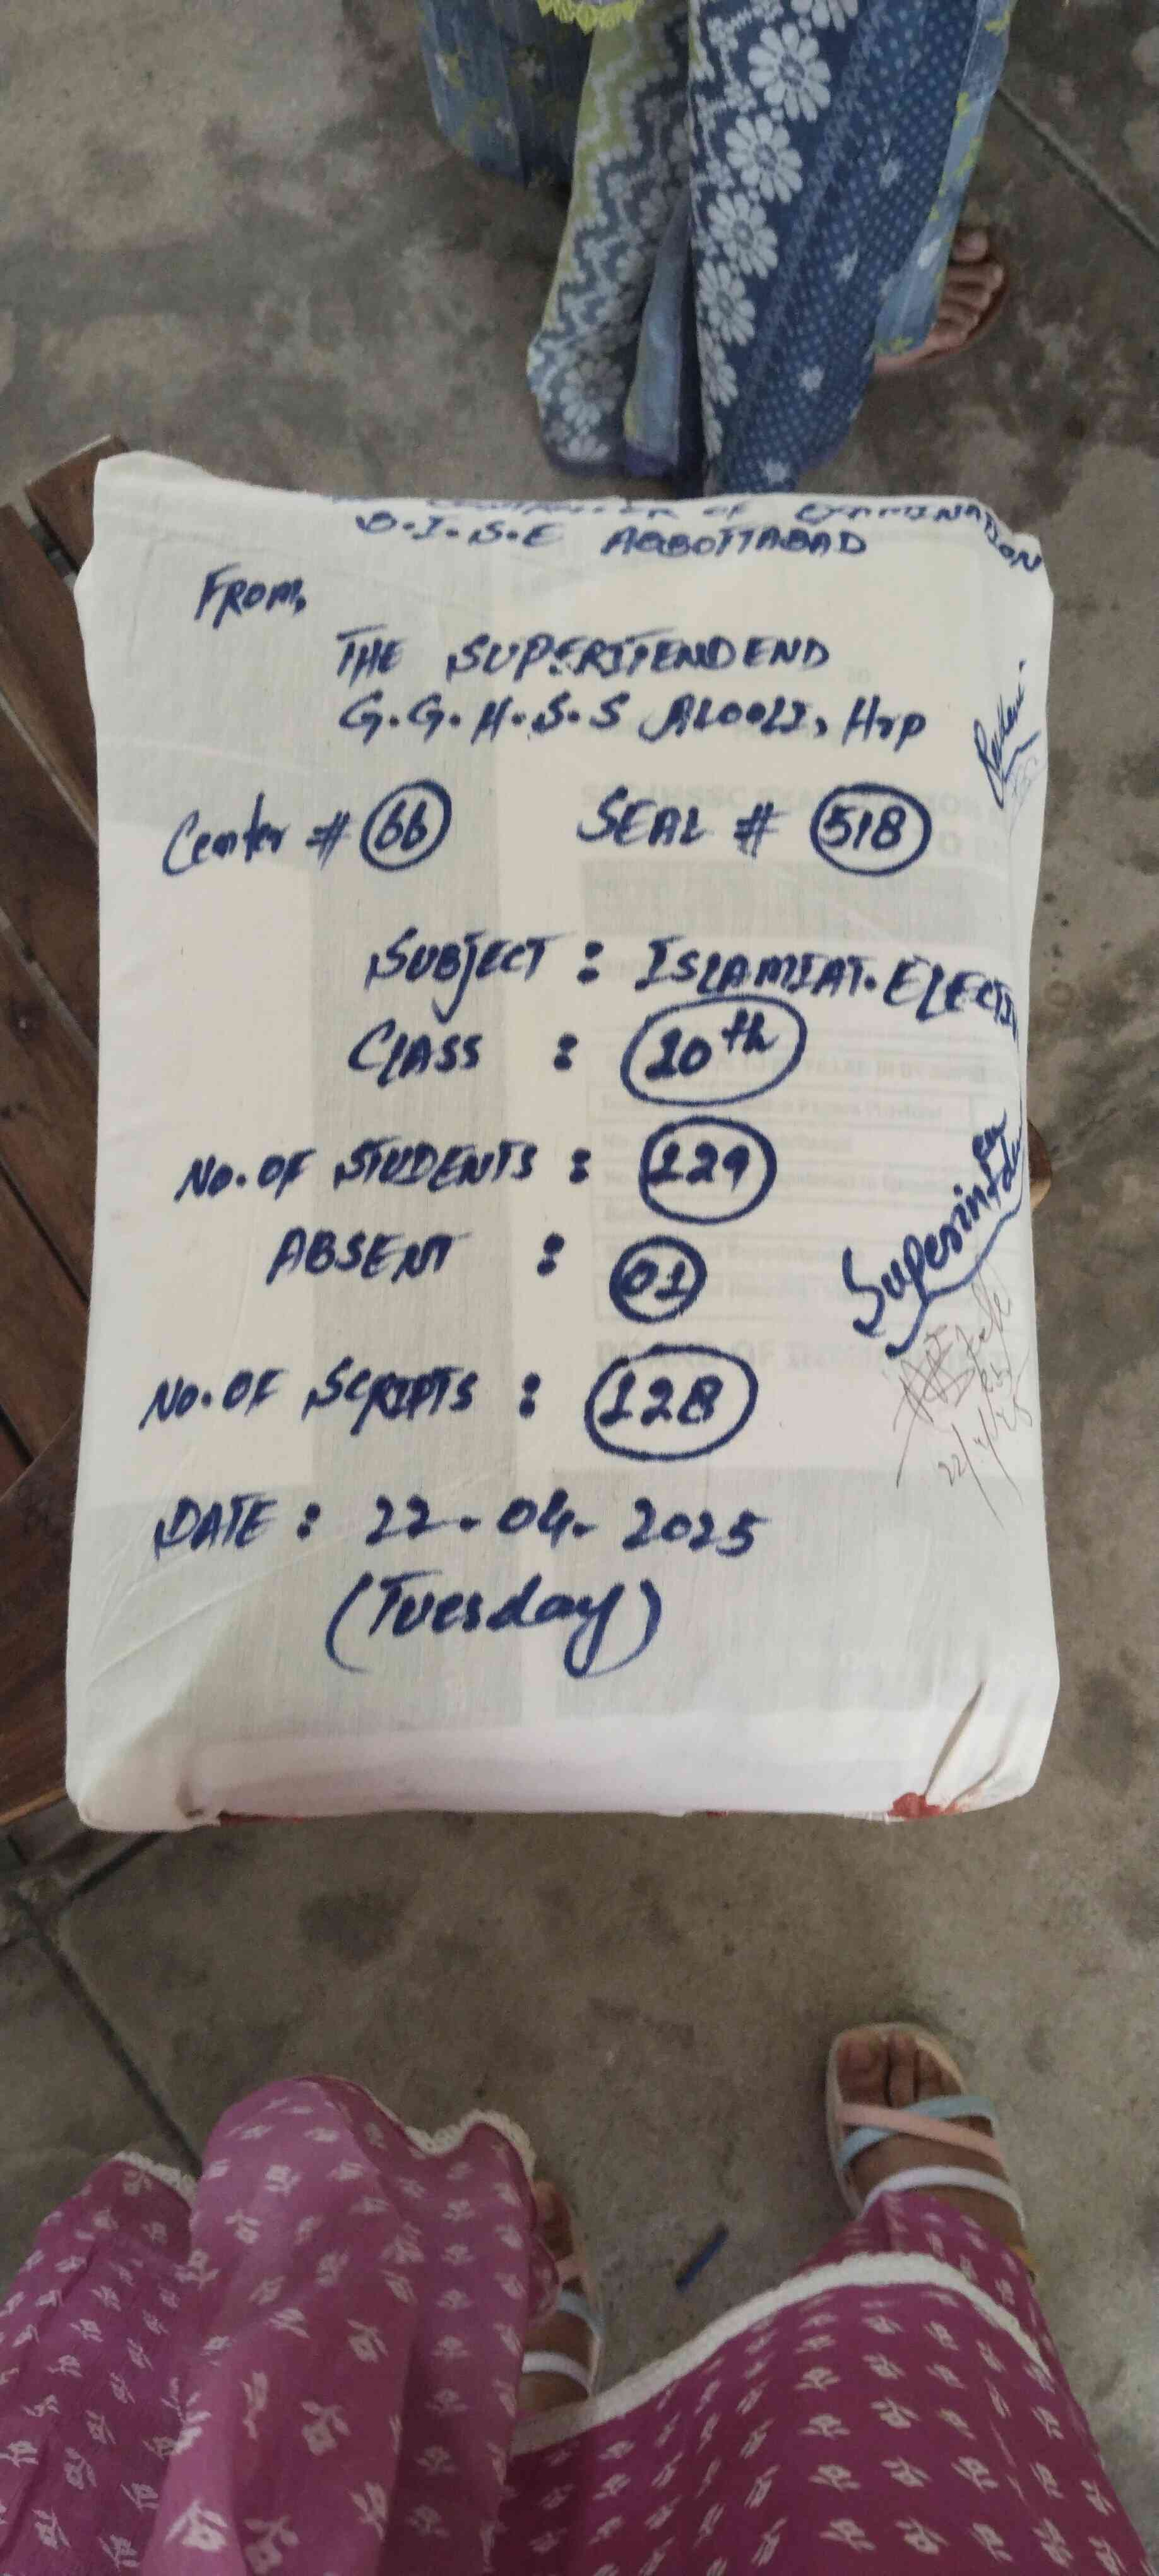 OF EXAMINATION
B.I.S.E ABBOTTABAD
FROM,
THE SUPERITENDEND
G.G.H.S.S ALOOLI, Hrp
Center # 66 SEAL # 518
SUBJECT : ISLAMIAT. ELECTI
CLASS : 10th
NO. OF STUDENTS : 129
ABSENT : 01
NO. OF SCRIPTS : 128
DATE : 22-04-2025
(Tuesday)
Superintden
22/4/25